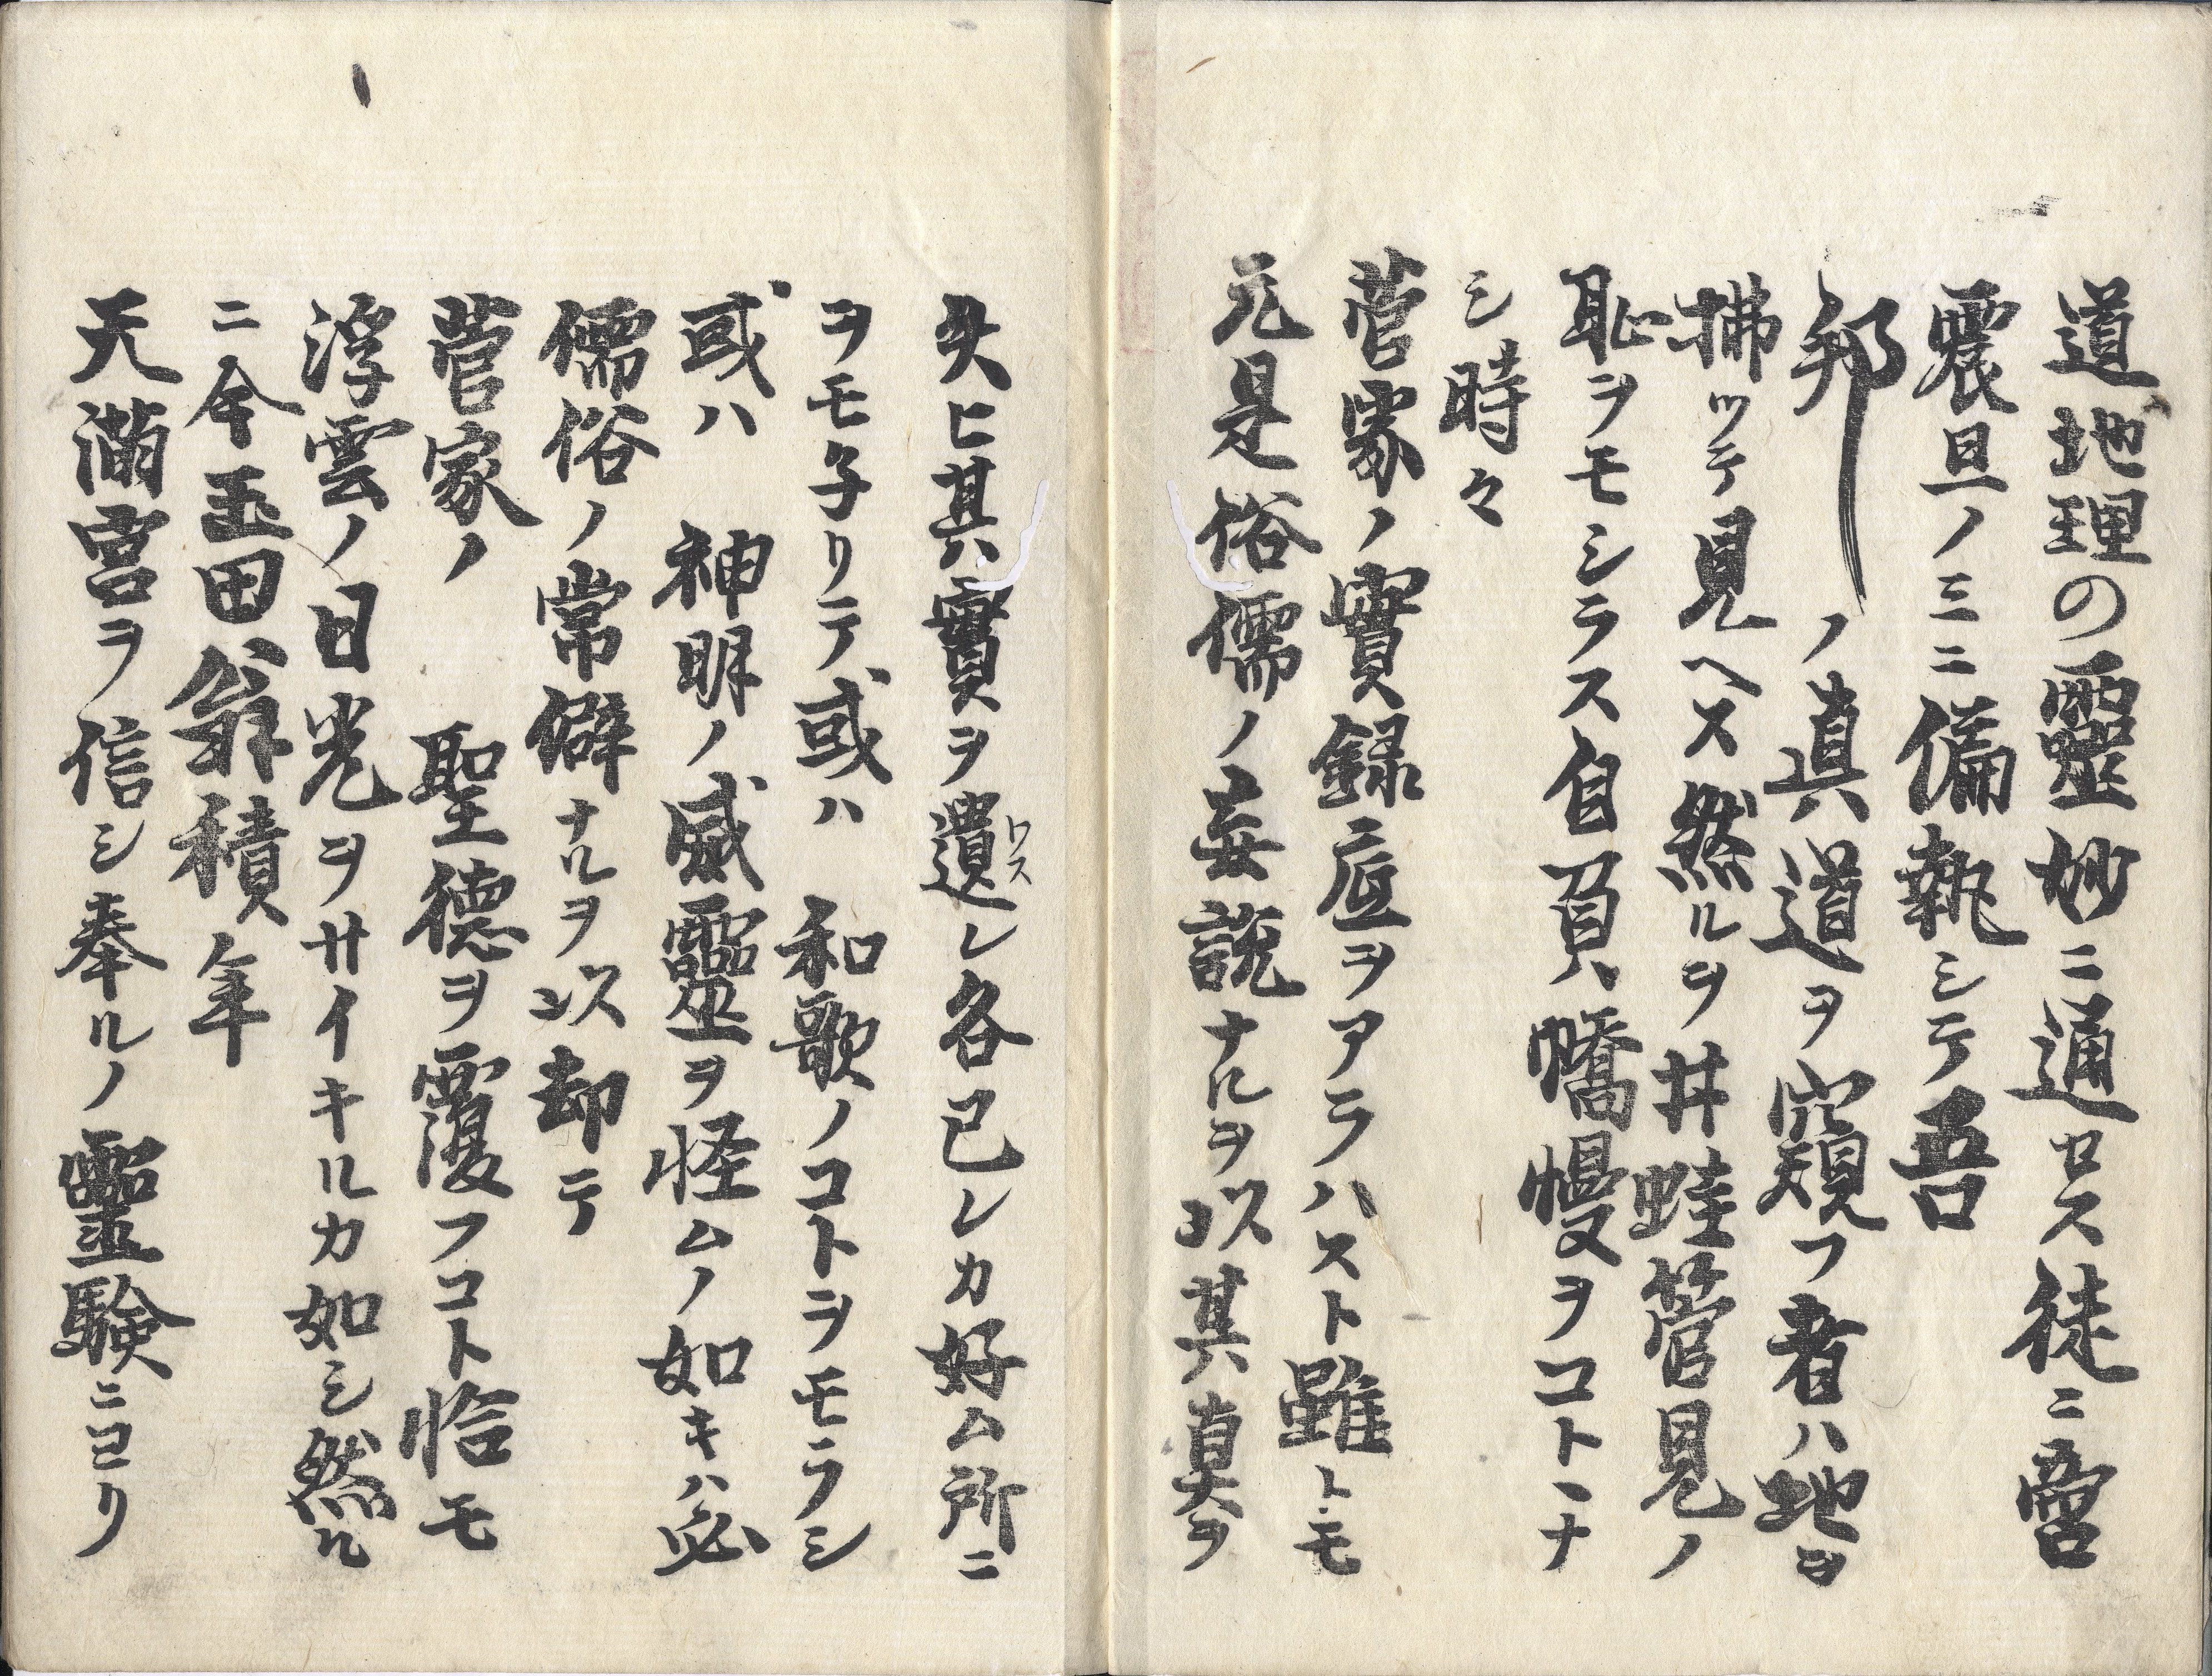 道地理の靈妙ニ通セス徒ニ啻
震旦ノミニ偏執シテ吾
邦ノ真道ヲ窺フ者ハ地ヲ
拂ツテ見ヘス然ルヲ井蛙管見ノ
恥ヲモシラス自負憍慢ヲコトヽナ
シ時々
菅家ノ實録庶ヲアラハスト雖トモ
元是俗儒ノ妄説ナルヲ以其真ヲ
失ヒ其實ヲ遺レ各己レカ好ム所ニ
ワス
ヲモ子リテ或ハ和歌ノコトヲモラシ
或ハ神明ノ威靈ヲ怪ムノ如キハ必
儒俗ノ常僻ナルヲ以却テ
菅家ノ聖德ヲ覆フコト恰モ
浮雲ノ日光ヲサイキルカ如シ然ル
ニ今玉田翁積年
天滿宮ヲ信シ奉ルノ靈驗ニヨリ